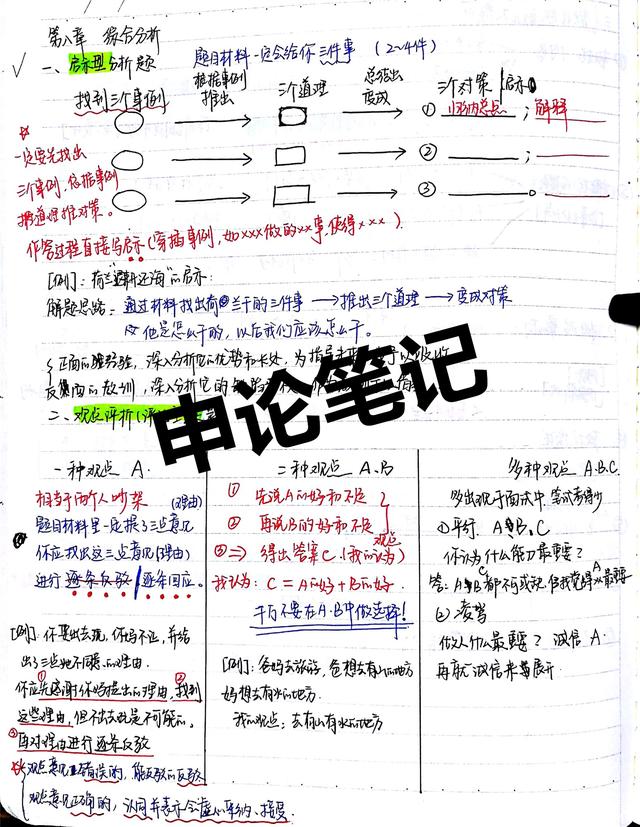 第八章 综合分析
一、启示型分析题 题目材料一定会给你三件事 (2~4件)
找到三个事例 根据事例推出 三个道理 总结出变成 三个对策/启示
① 归纳总点；解释
一定要先找出 ②
三个事例，依据事例 ③
推道理推对策。
作答过程直接写启示(穿插事例，如xxx做的xx事，使得xxx)
[例]：荷兰"退耕还海"的启示：
解题思路：通过材料找出荷兰干的三件事→推出三个道理→变成对策
他是怎么干的，以后我们应该怎么干。
正面的经验，深入分析它的优势和长处，为指导
反面的教训，深入分析它的
申论笔记
二、观点评析
一种观点 A.
相当于两个人吵架 (理由)
题目材料里一定提了三点意见
你应找出这三点意见(理由)
进行逐条反驳/逐条回应。
[例]：你要出去玩，你妈不让，并给
出了三点她不同意的理由.
你应先感谢你妈提出的理由，找到
这些理由，但不出去玩是不可能的。
再对理由进行逐条反驳
观点意见是错误的，能反驳的反驳
观点意见正确的，认同并表示会虚心采纳、接受
二种观点 A、B
① 先说A的好和不足
② 再说B的好和不足
③⇒ 得出答案C.(我的认为) 观点
我认为：C = A的好+B的好.
千万不要在A.B中做选择!
[例]：爸妈去旅游，爸想去有山的地方
妈想去有水的地方.
我的观点：去有山有水的地方
多种观点 A.B.C.
多出现于面试中，笔试考得少
①平行. A、B、C
你认为什么能力最重要？
答：A、B、C都不可或缺，但我觉得A最重要
②凌驾
做人什么最重要？ 诚信 A.
再就诚信来展开.